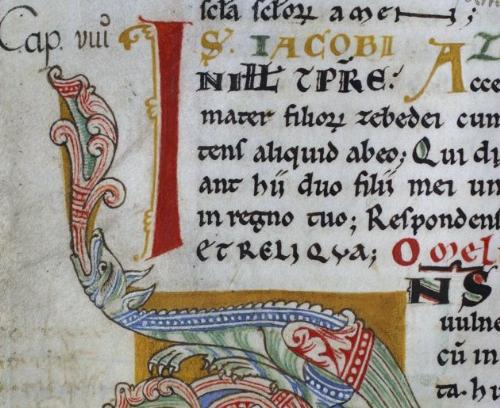 sc̄la sc̄lorꝝ amen;
Cap. viii I
S. IACOBI
IN ILL TPRE: Acce
mater filiorꝝ zebedei cum
tens aliquid ab eo; Qui di
ant hii duo filii mei un
in regno tuo; Respondens
ET RELIQUA; Omel
NS
uulne
cū in
ta. h